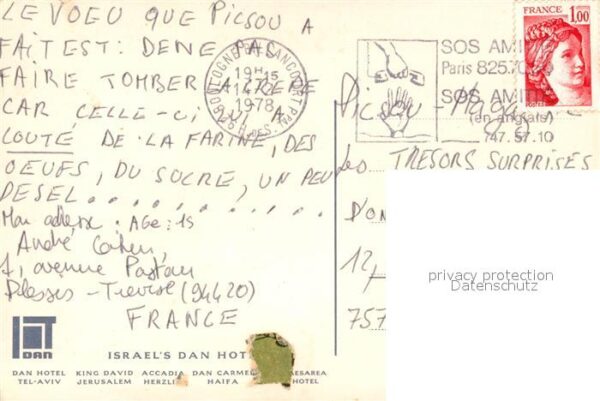 LE VOEU QUE PICSOU A
FAIT EST: DE NE PAS
FAIRE TOMBER LA CREPE
CAR CELLE-CI LUI A
COUTÉ DE LA FARINE, DES
OEUFS, DU SUCRE, UN PEU
DE SEL..........
Mon adresse. AGE: 15
André Cohen
7, avenue Pasteur
Plessis-Trevise (94420)
FRANCE
BOULOGNE BILLANCOURT PPAL
19H15
1978
SOS AMITIE
Paris 825.70
SOS AMITIE
(en anglais)
747.57.10
FRANCE
1,00
Picsou
Les TRESORS SURPRISES
12,
757
privacy protection
Datenschutz
DAN
ISRAEL'S DAN HOT
DAN HOTEL KING DAVID ACCADIA DAN CARMEL
TEL-AVIV JERUSALEM HERZLI HAIFA HOTEL